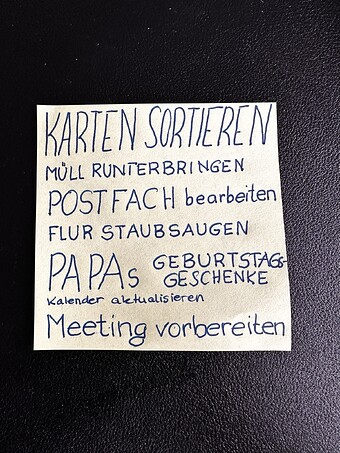 KARTEN SORTIEREN
MÜLL RUNTERBRINGEN
POSTFACH bearbeiten
FLUR STAUBSAUGEN
PAPAs GEBURTSTAGS-
GESCHENKE
Kalender aktualisieren
Meeting vorbereiten